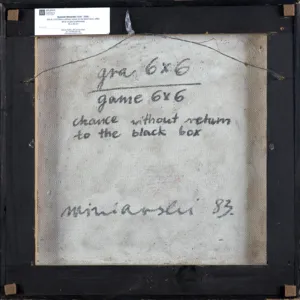 gra 6x6
game 6x6
chance without return
to the black box
winiarski 83.